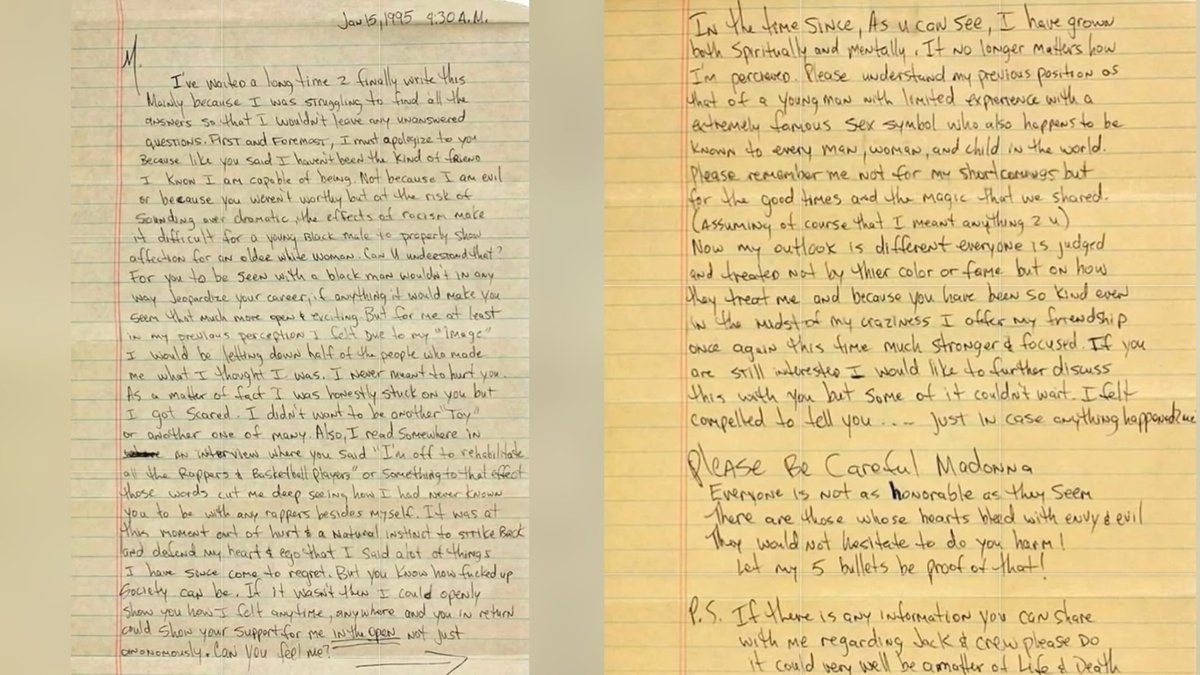 Jan 15, 1995 4:30 A.M.
M.
I've waited a long time 2 finally write this
Mainly because I was struggling to find all the
answers so that I wouldn't leave any unanswered
questions. First and Foremost, I must apologize to you
Because like you said I haven't been the kind of friend
I know I am capable of being. Not because I am evil
or because you weren't worthy but at the risk of
sounding over dramatic, the effects of racism make
it difficult for a young Black male to properly show
affection for an older white woman. Can U understand that?
For you to be seen with a black man wouldn't in any
way jeopardize your career, if anything it would make you
seem that much more open & exciting. But for me at least
in my previous perception I felt due to my "Image"
I would be letting down half of the people who made
me what I thought I was. I never meant to hurt you.
As a matter of fact I was honestly stuck on you but
I got scared. I didn't want to be another "Toy"
or another one of many. Also, I read somewhere in
an interview where you said "I'm off to rehabilitate
all the Rappers & Basketball Players" or something to that effect
those words cut me deep seeing how I had never known
you to be with any rappers besides myself. It was at
this moment out of hurt & a natural instinct to strike Back
and defend my heart & ego that I said alot of things
I have since come to regret. But you know how fucked up
Society can be. If it wasn't then I could openly
show you how I felt anytime, anywhere and you in return
could show your support for me in the open not just
anonomously. Can you feel me?
In the time since, As u can see, I have grown
both Spiritually and mentally. It no longer matters how
I'm percieved. Please understand my previous position as
that of a young man with limited experience with a
extremely famous sex symbol who also happens to be
known to every man, woman, and child in the world.
Please remember me not for my shortcomings but
for the good times and the magic that we shared.
(Assuming of course that I meant anything 2 u)
Now my outlook is different everyone is judged
and treated not by thier color or fame but on how
they treat me and because you have been so kind even
in the midst of my craziness I offer my friendship
once again this time much stronger & focused. If you
are still interested I would like to further discuss
this with you but some of it couldn't wait. I felt
compelled to tell you .... just in case anything happened 2 me
Please Be Careful Madonna
Everyone is not as honorable as they seem
There are those whose hearts bleed with envy & evil
They would not hesitate to do you harm!
Let my 5 bullets be proof of that!
P.S. If there is any information you can share
with me regarding Jack & crew please Do
it could very well be a matter of Life & Death